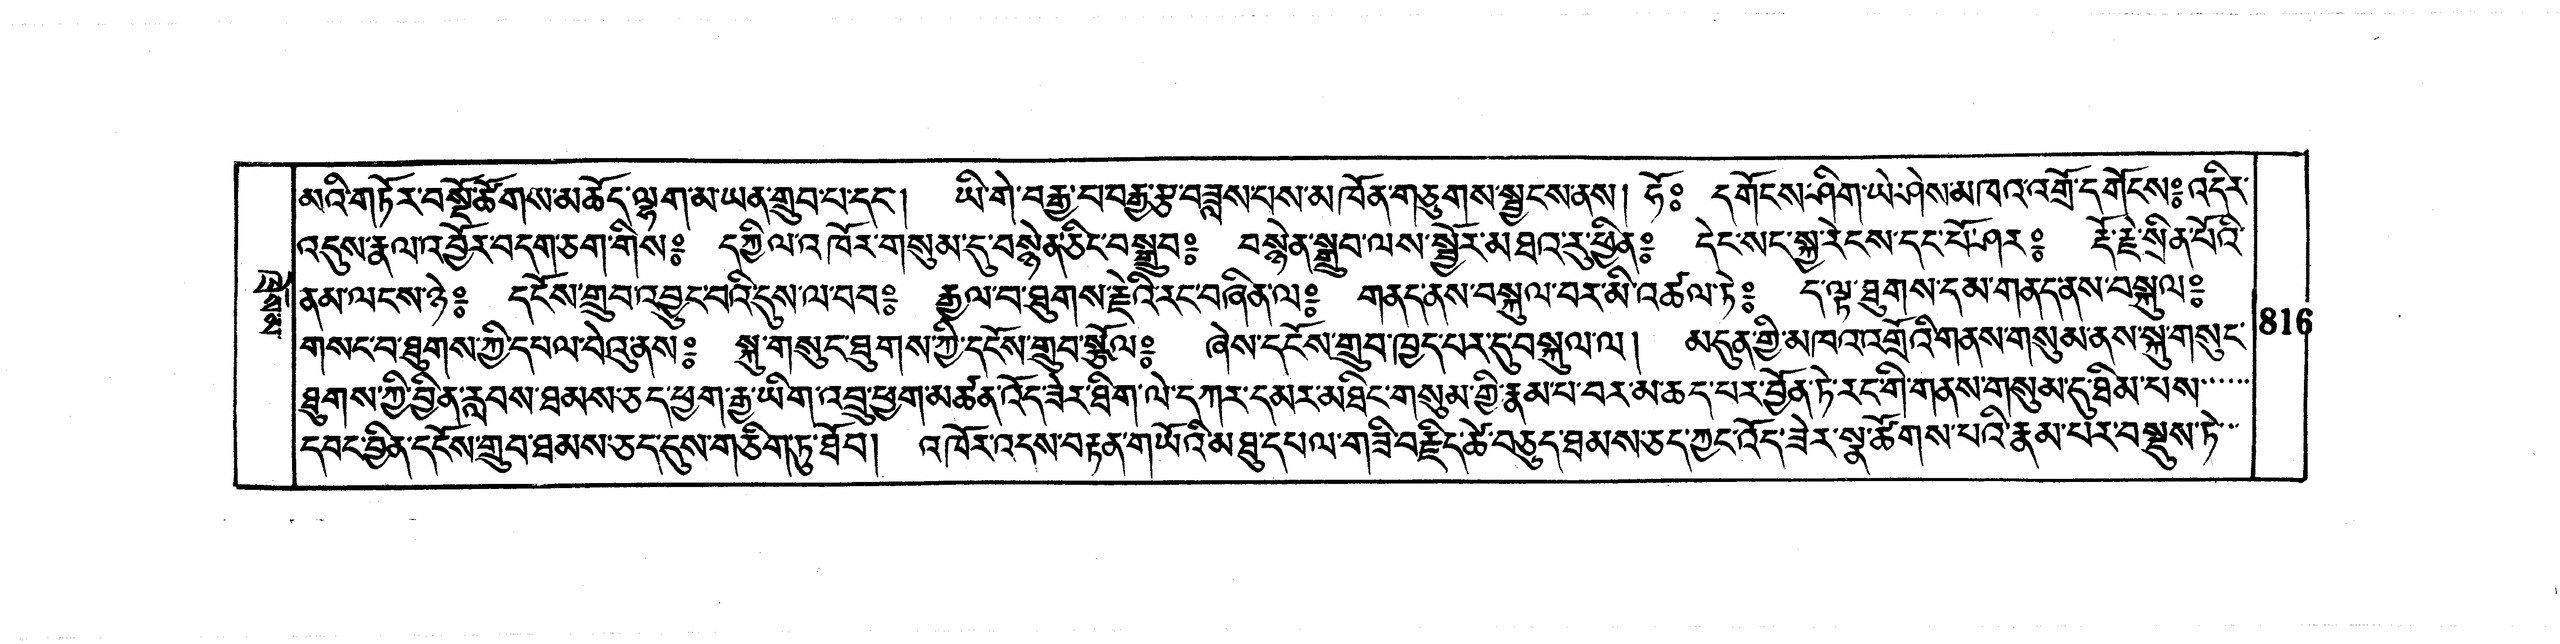 མའི་གཏོར་བསྔོ་ཚོགས་མཆོད་ལྷག་མ་ཡན་གྲུབ་པ་དང་།   ཡི་གེ་བརྒྱ་པ་བརྒྱ་རྩ་བཟླས་པས་མ་ཁོན་གཅུགས་སྦྱངས་ནས། ཧོ༔   དགོངས་ཤིག་ཡེ་ཤེས་མཁའ་འགྲོ་དགོངས༔ འདིར་
འདུས་རྣལ་འབྱོར་བདག་ཅག་གིས༔   དཀྱིལ་འཁོར་གསུམ་དུ་བསྙེན་ཅིང་བསྒྲུབ༔   བསྙེན་སྒྲུབ་ལས་སྦྱོར་མཐའ་རུ་ཕྱིན༔   དེང་སང་སྐྱ་རེངས་དང་པོ་ཤར༔   རྡོ་རྗེ་སྲིན་པོའི་
ནམ་ལངས་ཉེ༔   དངོས་གྲུབ་འབྱུང་བའི་དུས་ལ་བབ༔   རྒྱལ་བ་ཐུགས་རྗེའི་རང་བཞིན་ལ༔   གནད་ནས་བསྐུལ་བར་མི་འཚལ་ཏེ༔   ད་ལྟ་ཐུགས་དམ་གནད་ནས་བསྐུལ༔
གསང་བ་ཐུགས་ཀྱི་དཔལ་བེའུ་ནས༔   སྐུ་གསུང་ཐུགས་ཀྱི་དངོས་གྲུབ་སྩོལ༔   ཞེས་དངོས་གྲུབ་ཁྱད་པར་དུ་བསྐུལ་ལ།   མདུན་གྱི་མཁའ་འགྲོའི་གནས་གསུམ་ནས་སྐུ་གསུང་
ཐུགས་ཀྱི་བྱིན་རླབས་ཐམས་ཅད་ཕྱག་རྒྱ་ཡིག་འབྲུ་ཕྱག་མཚན་འོད་ཟེར་ཐིག་ལེ་དཀར་དམར་མཐིང་གསུམ་གྱི་རྣམ་པ་བར་མ་ཆད་པར་བྱོན་ཏེ་རང་གི་གནས་གསུམ་དུ་ཐིམ་པས
དབང་བྱིན་དངོས་གྲུབ་ཐམས་ཅད་དུས་གཅིག་ཏུ་ཐོབ།   འཁོར་འདས་བརྟན་གཡོའི་མཐུ་དཔལ་གཟི་བརྗིད་ཚེ་བཅུད་ཐམས་ཅད་ཀྱང་འོད་ཟེར་སྣ་ཚོགས་པའི་རྣམ་པར་བསྡུས་ཏེ
816